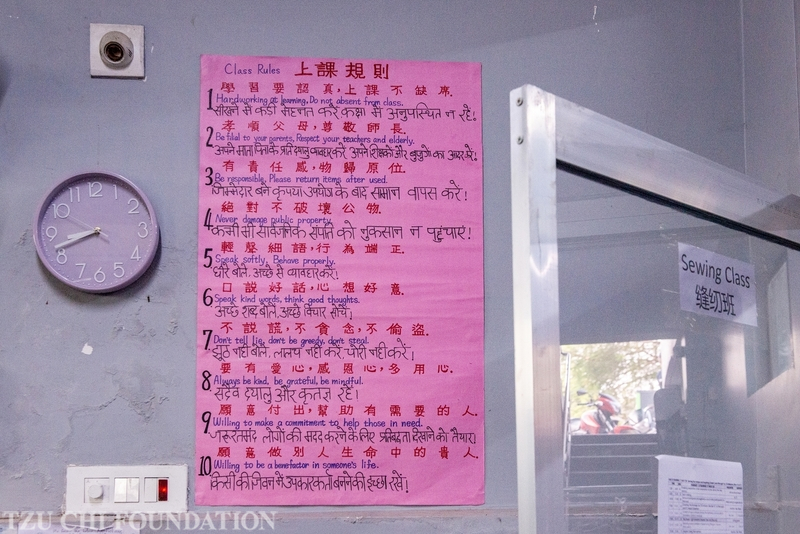 Class Rules 上課規則
1 學習要認真,上課不缺席.
Hardworking at learning, Do not absent from class.
सीखने में कड़ी मेहनत करें कक्षा में अनुपस्थित न रहें!
2 孝順父母,尊敬師長.
Be filial to your parents, Respect your teachers and elderly.
अपने माता पिता के प्रति दयालु व्यवहार करें अपने शिक्षकों और बुजुर्गो का आदर करें!
3 有責任感,物歸原位.
Be responsible, Please return items after used.
जिम्मेदार बनें कृपया उपयोग के बाद सामान वापस करें!
4 絕對不破壞公物.
Never damage public property.
कभी भी सार्वजनिक संपति को नुकसान न पहुंचाएं!
5 輕聲細語,行為端正.
Speak softly, Behave properly.
धीरे बोलें, अच्छे से व्यवहार करें!
6 口說好話,心想好意.
Speak kind words, think good thoughts.
अच्छे शब्द बोलें, अच्छे विचार सोचें!
7 不說謊,不貪念,不偷盜.
Don't tell lie, don't be greedy, don't steal.
झूठ नहीं बोलें, लालच नहीं करें, चोरी नहीं करें!
8 要有愛心,感恩心,多用心.
Always be kind, be grateful, be mindful.
सदैव दयालु और कृतज्ञ रहें!
9 願意付出,幫助有需要的人.
Willing to make a commitment to help those in need.
जरूरतमंद लोगों की मदद करने के लिए प्रतिबद्धता दिखाने को तैयार!
10 願意做別人生命中的貴人.
Willing to be a benefactor in someone's life.
किसी की जिवन में उपकारकर्ता बनने की इच्छा रखें!
12
11
10
9
8
7
6
5
4
3
2
1
Sewing Class
缝纫班
TZU CHI FOUNDATION